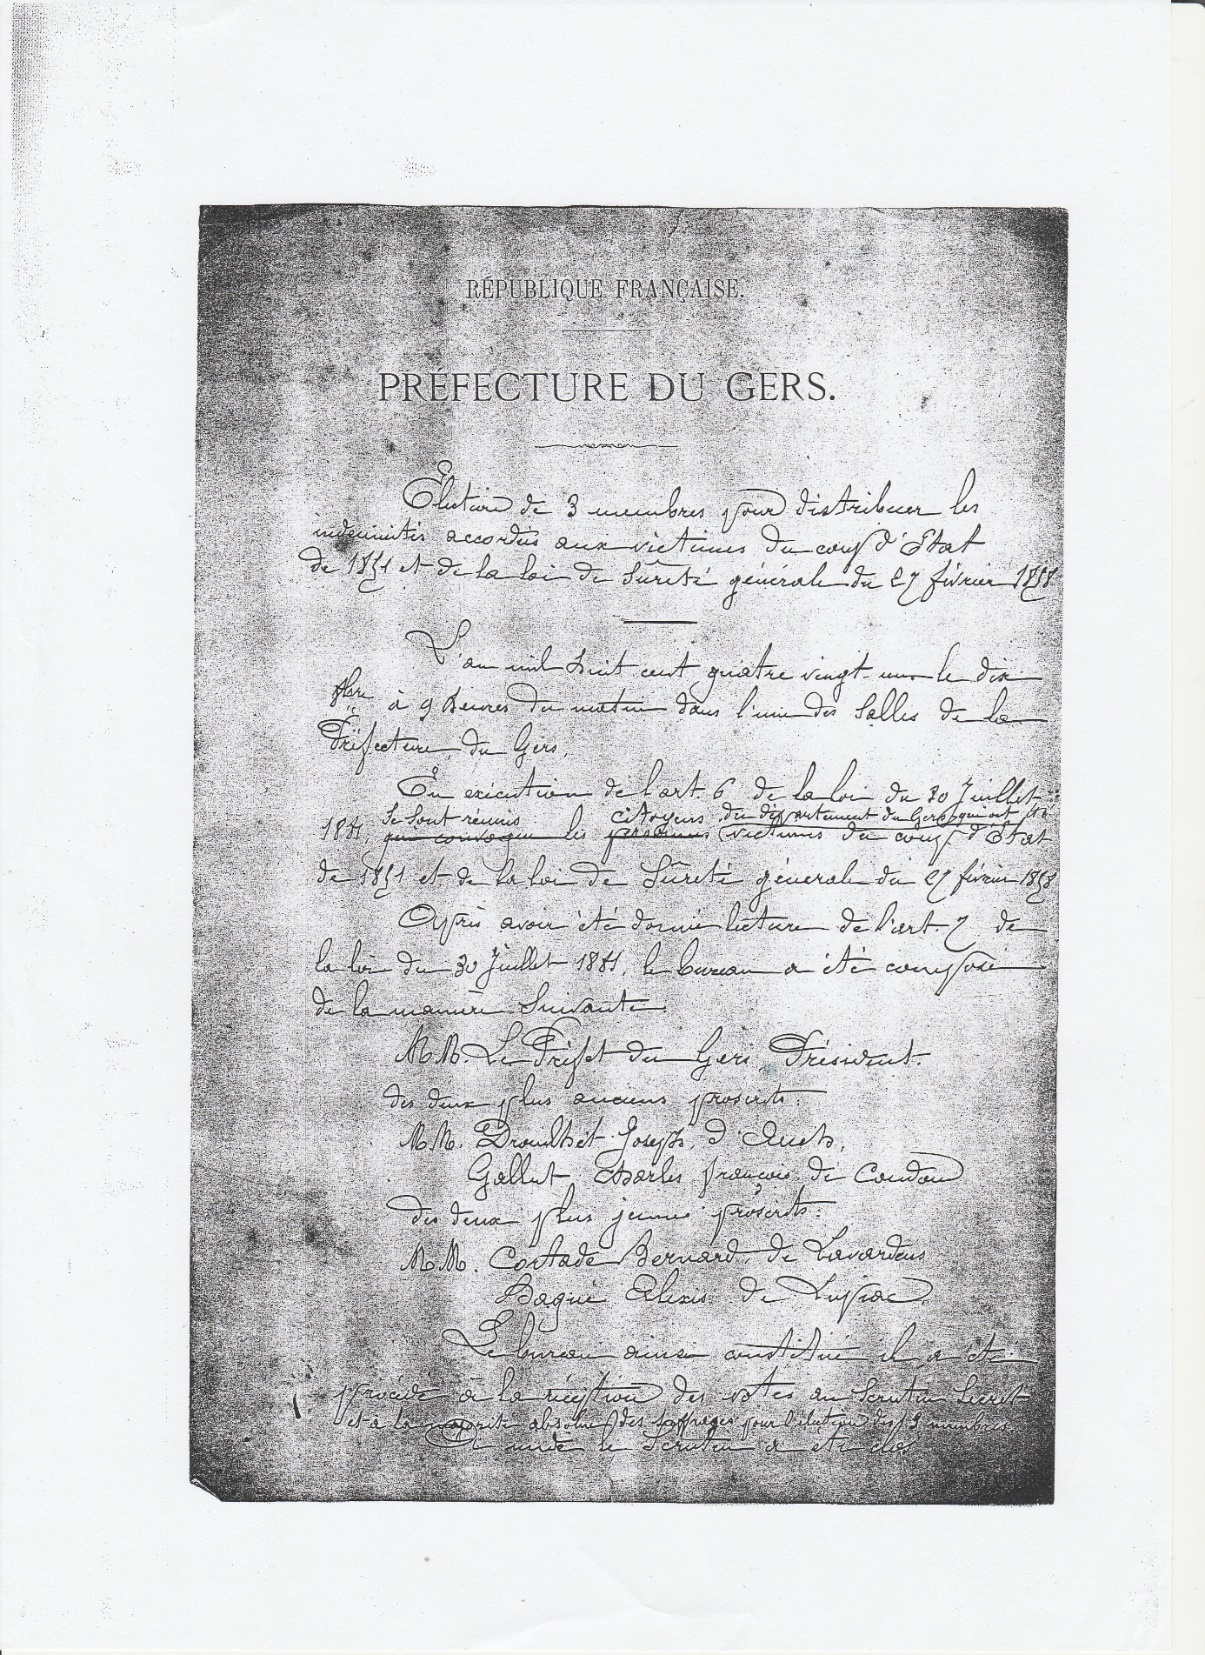 RÉPUBLIQUE FRANÇAISE.
PRÉFECTURE DU GERS.
Élection de 3 membres pour distribuer les
indemnités accordées aux victimes du coup d'État
de 1851 et de la loi de Sûreté générale du 27 février 1858
L'an mil huit cent quatre vingt un le dix
7bre à 9 heures du matin dans l'une des Salles de la
Préfecture du Gers,
En exécution de l'art. 6 de la loi du 30 Juillet
se sont réunis citoyens du département du Gers qui ont été
1881, les victimes du coup d'État
de 1851 et de la loi de Sûreté générale du 27 février 1858
Après avoir été donné lecture de l'art. 7 de
la loi du 30 Juillet 1881, le bureau a été composé
de la manière suivante
MM Le Préfet du Gers, Président.
des deux plus anciens proscrits.
MM. Drouilhet Joseph, d'Auch,
Gallut Charles françois de Condom
des deux plus jeunes proscrits.
MM. Cortade Bernard, de Lavardens
Bagué Alexis de Lupiac.
Le bureau ainsi constitué il a été
procédé à la réception des votes au Scrutin Secret
et à la majorité absolue des suffrages pour l'élection des 3 membres.
A midi le Scrutin a été clos